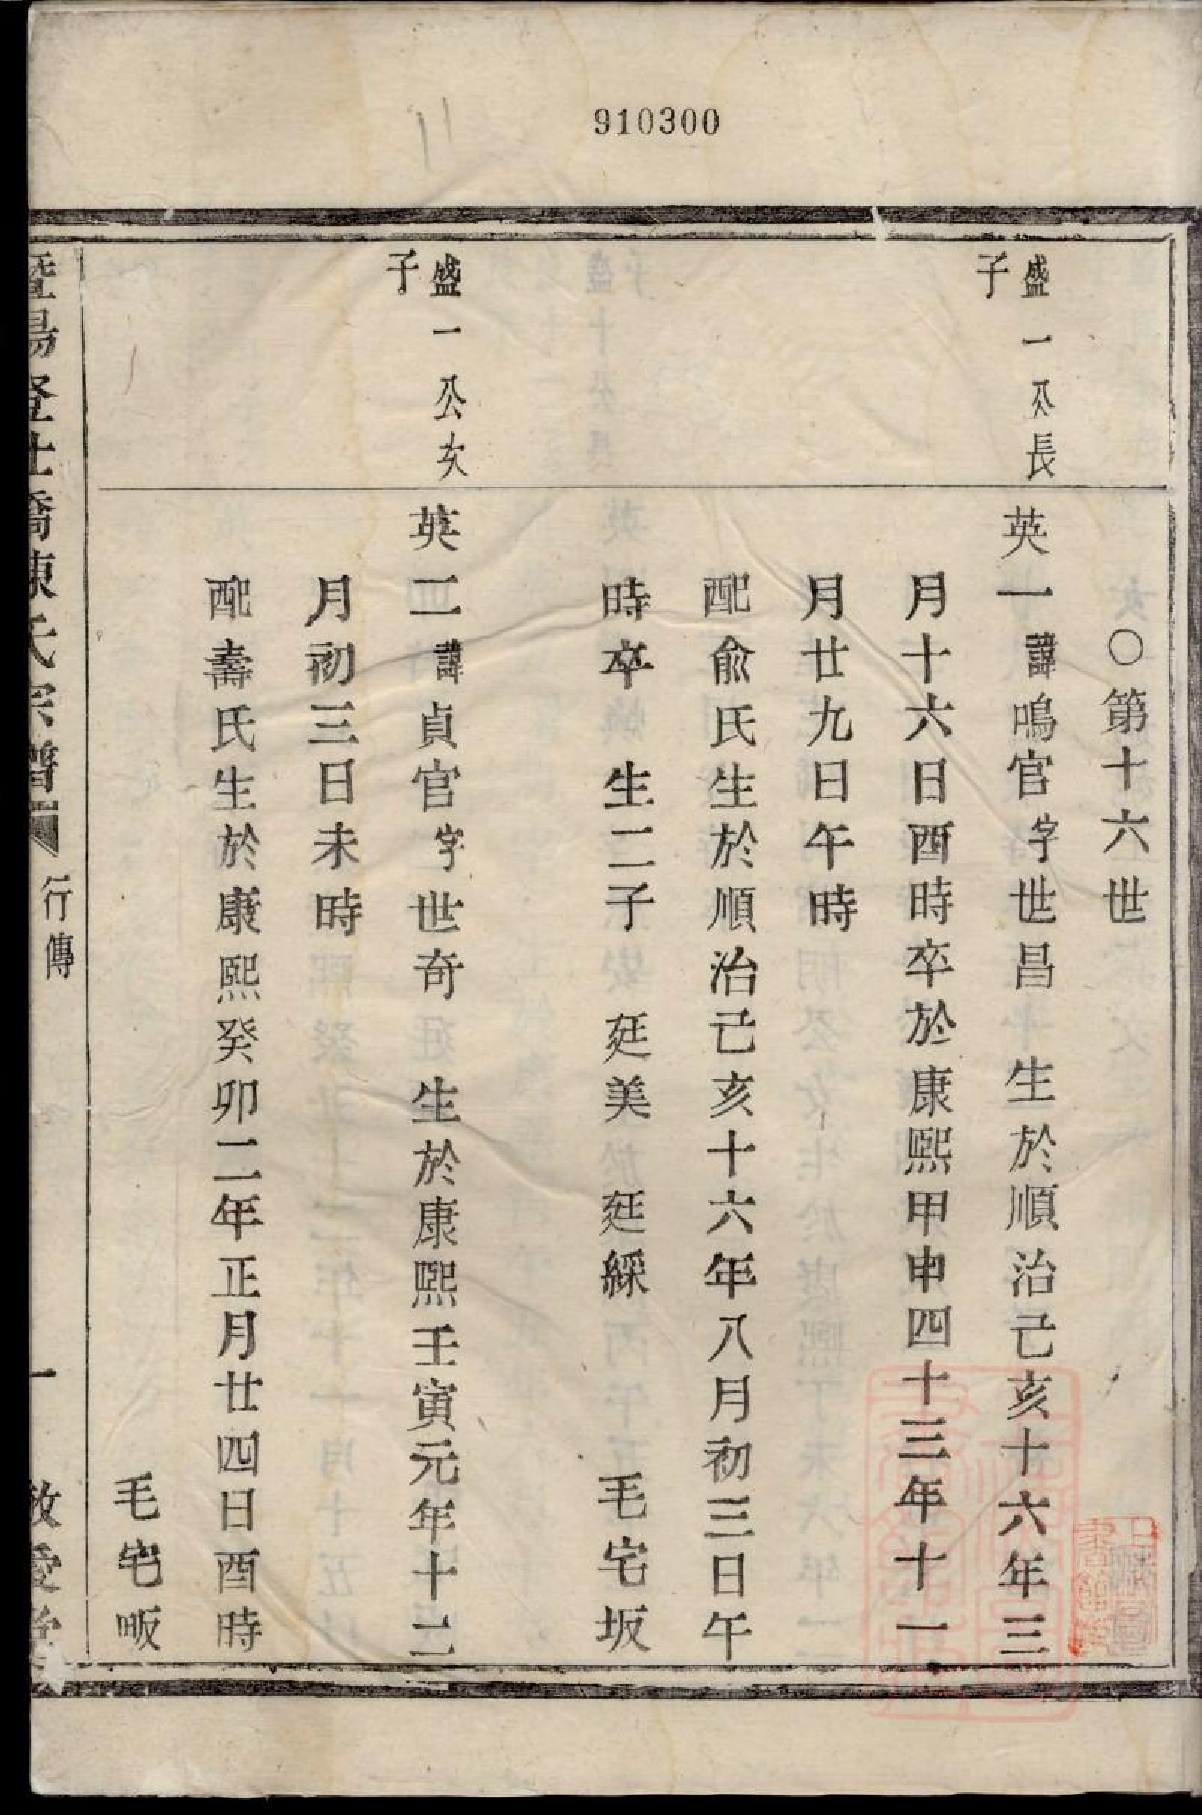 910300
〇第十六世
盛一公長
子
英一諱鳴官字世昌 生於順治己亥十六年三
月十六日酉時卒於康熙甲申四十三年十一
月廿九日午時
配俞氏生於順治己亥十六年八月初三日午
時卒 生二子 廷美 廷綵 毛宅坂
盛一公次
子
英二諱貞官字世奇 生於康熙壬寅元年十二
月初三日未時
配壽氏生於康熙癸卯二年正月廿四日酉時
毛宅畈
暨陽登仕橋陳氏宗譜 行傳 一 敦愛堂